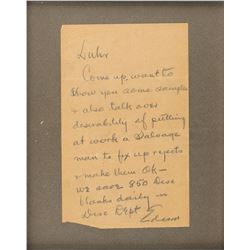 Come up, want to
show you some samples
+ also talk over
desirability of putting
at work a Salvage
man to fix up rejects
+ make them OK—
we save 850 Disc
blanks daily in
Disc Dept
Edison